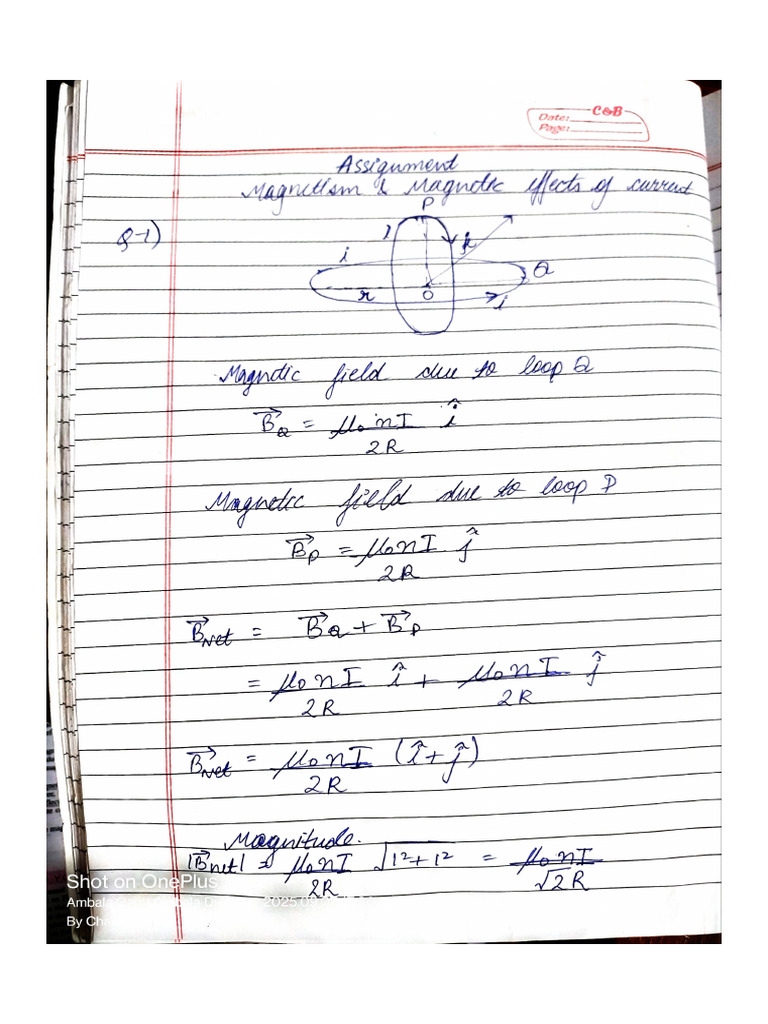 C&B
Date:
Page:
Assignment
Magnetism & Magnetic effects of current
Q-1)
P
i
R
Q
r
O
i
Magnetic field due to loop Q
B⃗_Q = μ₀nI/2R î
Magnetic field due to loop P
B⃗_P = μ₀nI/2R ĵ
B⃗_Net = B⃗_Q + B⃗_P
= μ₀nI/2R î + μ₀nI/2R ĵ
B⃗_Net = μ₀nI/2R (î + ĵ)
Magnitude.
|B⃗_net| = μ₀nI/2R √1²+1² = μ₀nI/√2R
Shot on OnePlus
Ambala
By Cha